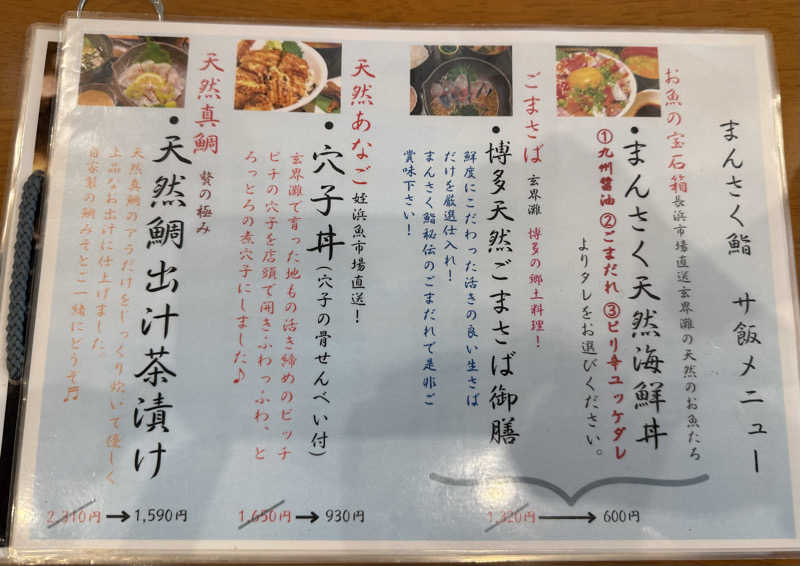 まんさく鮨　サ飯メニュー
お魚の宝石箱 長浜市場直送玄界灘の天然のお魚たち
・まんさく天然海鮮丼
①九州醤油 ②ごまだれ ③ピリ辛ユッケダレ
よりタレをお選びください。
ごまさば 玄界灘 博多の郷土料理！
・博多天然ごまさば御膳
鮮度にこだわった活きの良い生さば
だけを厳選仕入れ！
まんさく鮨秘伝のごまだれで是非ご
賞味下さい！
1,320円→600円
天然あなご 姪浜魚市場直送！
・穴子丼（穴子の骨せんべい付）
玄界灘で育った地もの活き締めのピッチ
ピチの穴子を店頭で開きふわっふわ、と
ろっとろの煮穴子にしました♪
1,650円→930円
天然真鯛 贅の極み
・天然鯛出汁茶漬け
天然真鯛のアラだけをじっくり炊いて優しく
上品なお出汁に仕上げました。
自家製の鯛みそとご一緒にどうぞ♬
2,310円→1,590円